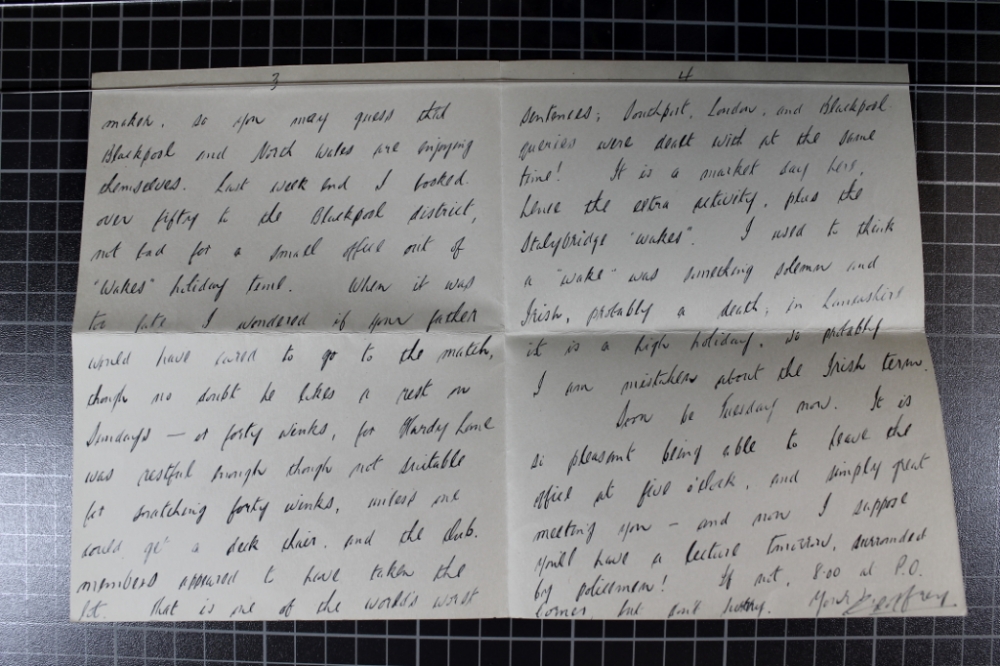 3
maker, so you may guess that
Blackpool and North Wales are enjoying
themselves. Last week end I booked
over fifty to the Blackpool district,
not bad for a small office out of
"Wakes" holiday time. When it was
too late I wondered if your father
would have cared to go to the match,
though no doubt he likes a rest on
Sundays — or forty winks, for Hardy Lane
was restful enough though not suitable
for snatching forty winks, unless one
could get a deck chair, and the club
members appeared to have taken the
lot. That is one of the world's worst
4
sentences; Southport, London, and Blackpool
queries were dealt with at the same
time! It is a market day here,
hence the extra activity, plus the
Stalybridge "wakes". I used to think
a "wake" was something solemn and
Irish, probably a death; in Lancashire
it is a high holiday, so probably
I am mistaken about the Irish term.
Soon be Tuesday now. It is
so pleasant being able to leave the
office at five o'clock, and simply great
meeting you — and now I suppose
you'll have a lecture tomorrow, surrounded
by policemen! If not, 8.00 at P.O.
corner, but don't hurry. Yours Geoffrey.